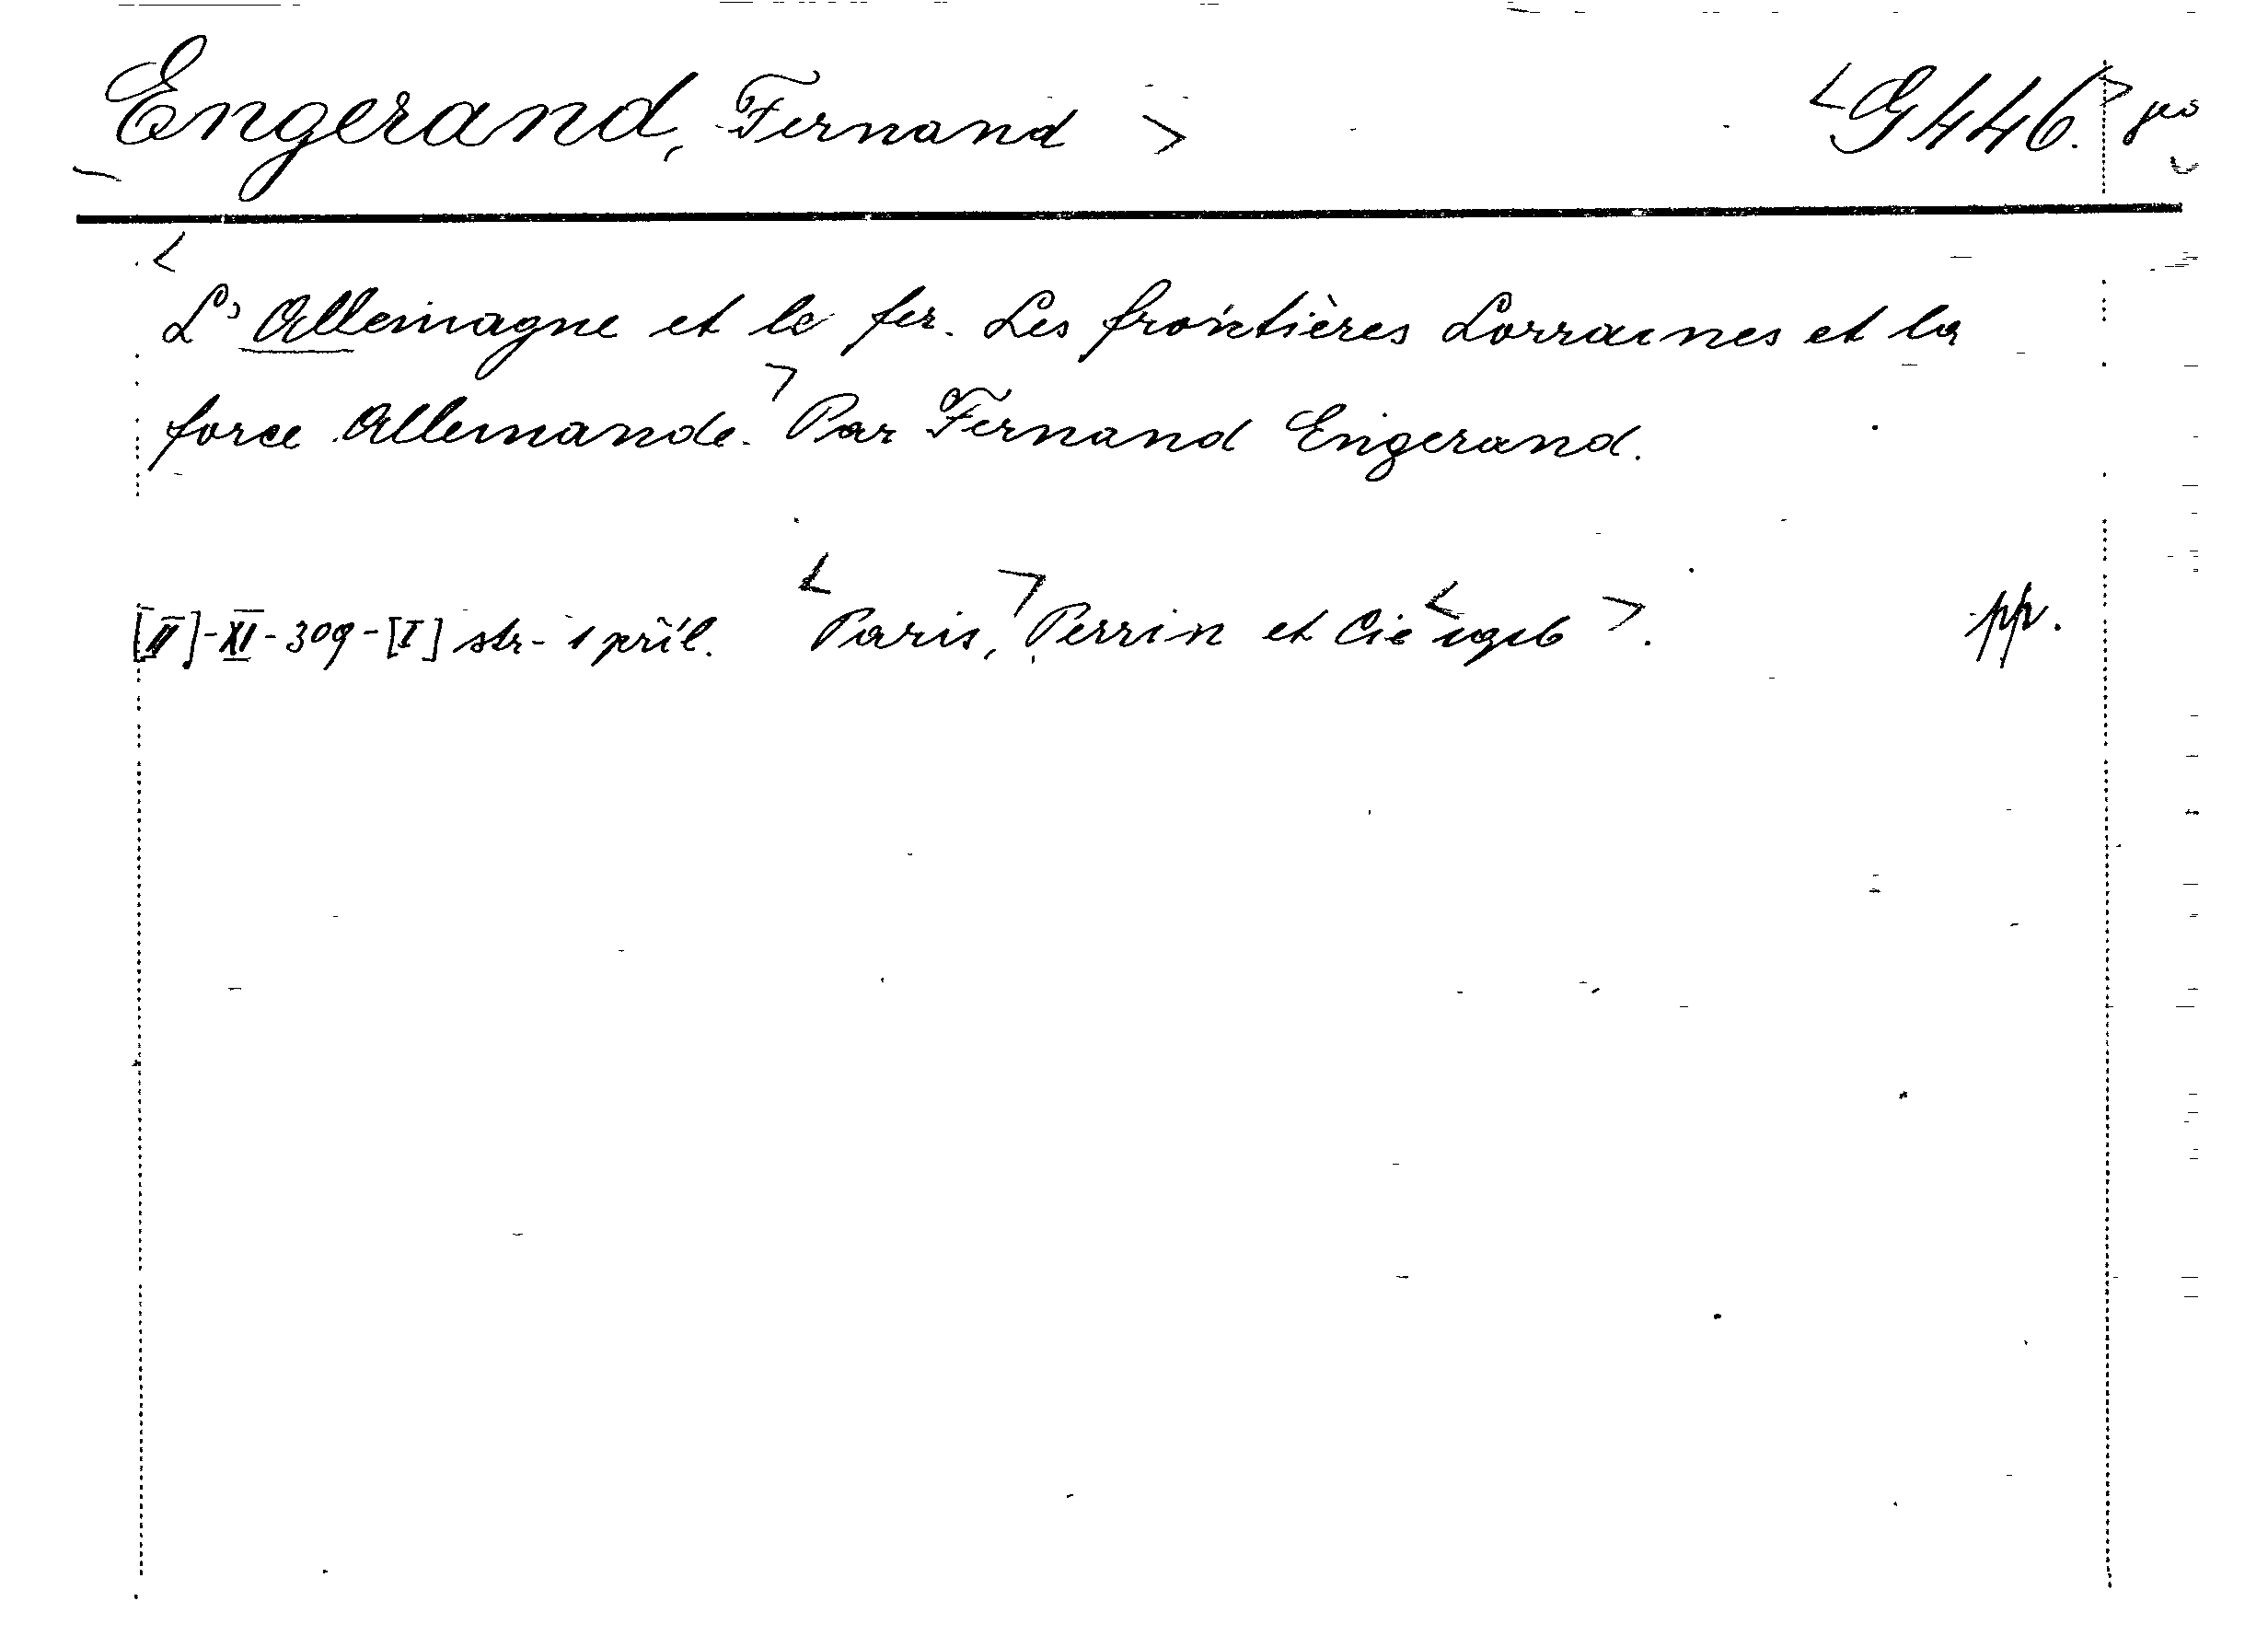 Engerand, Fernand > <G 446.>
<L'Allemagne et le fer. Les frontières Lorraines et la
force Allemande.> Par Fernand Engerand.
[II]-XI-309-[I] str- 1 příl. <Paris,> Perrin et Cie <1916>. pp.